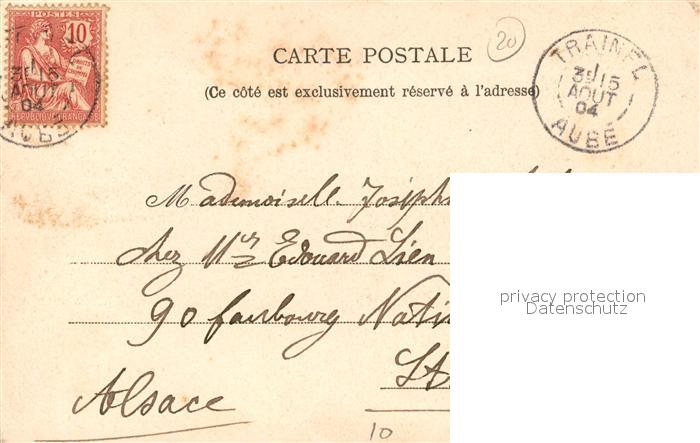 POSTES 10
RÉPUBLIQUE FRANÇAISE
3E 15
AOUT
04
AUBE
20
CARTE POSTALE
(Ce côté est exclusivement réservé à l'adresse)
TRAINEL
3E 15
AOUT
04
AUBE
Mademoiselle Joséph
chez Mr Edouard Lien
90 faubourg Nati
St
Alsace
10
privacy protection
Datenschutz